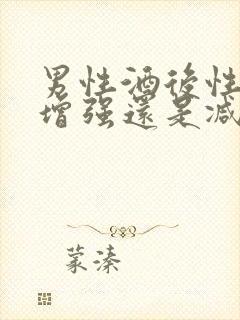 男性酒後性
增强還是減
蒙溱